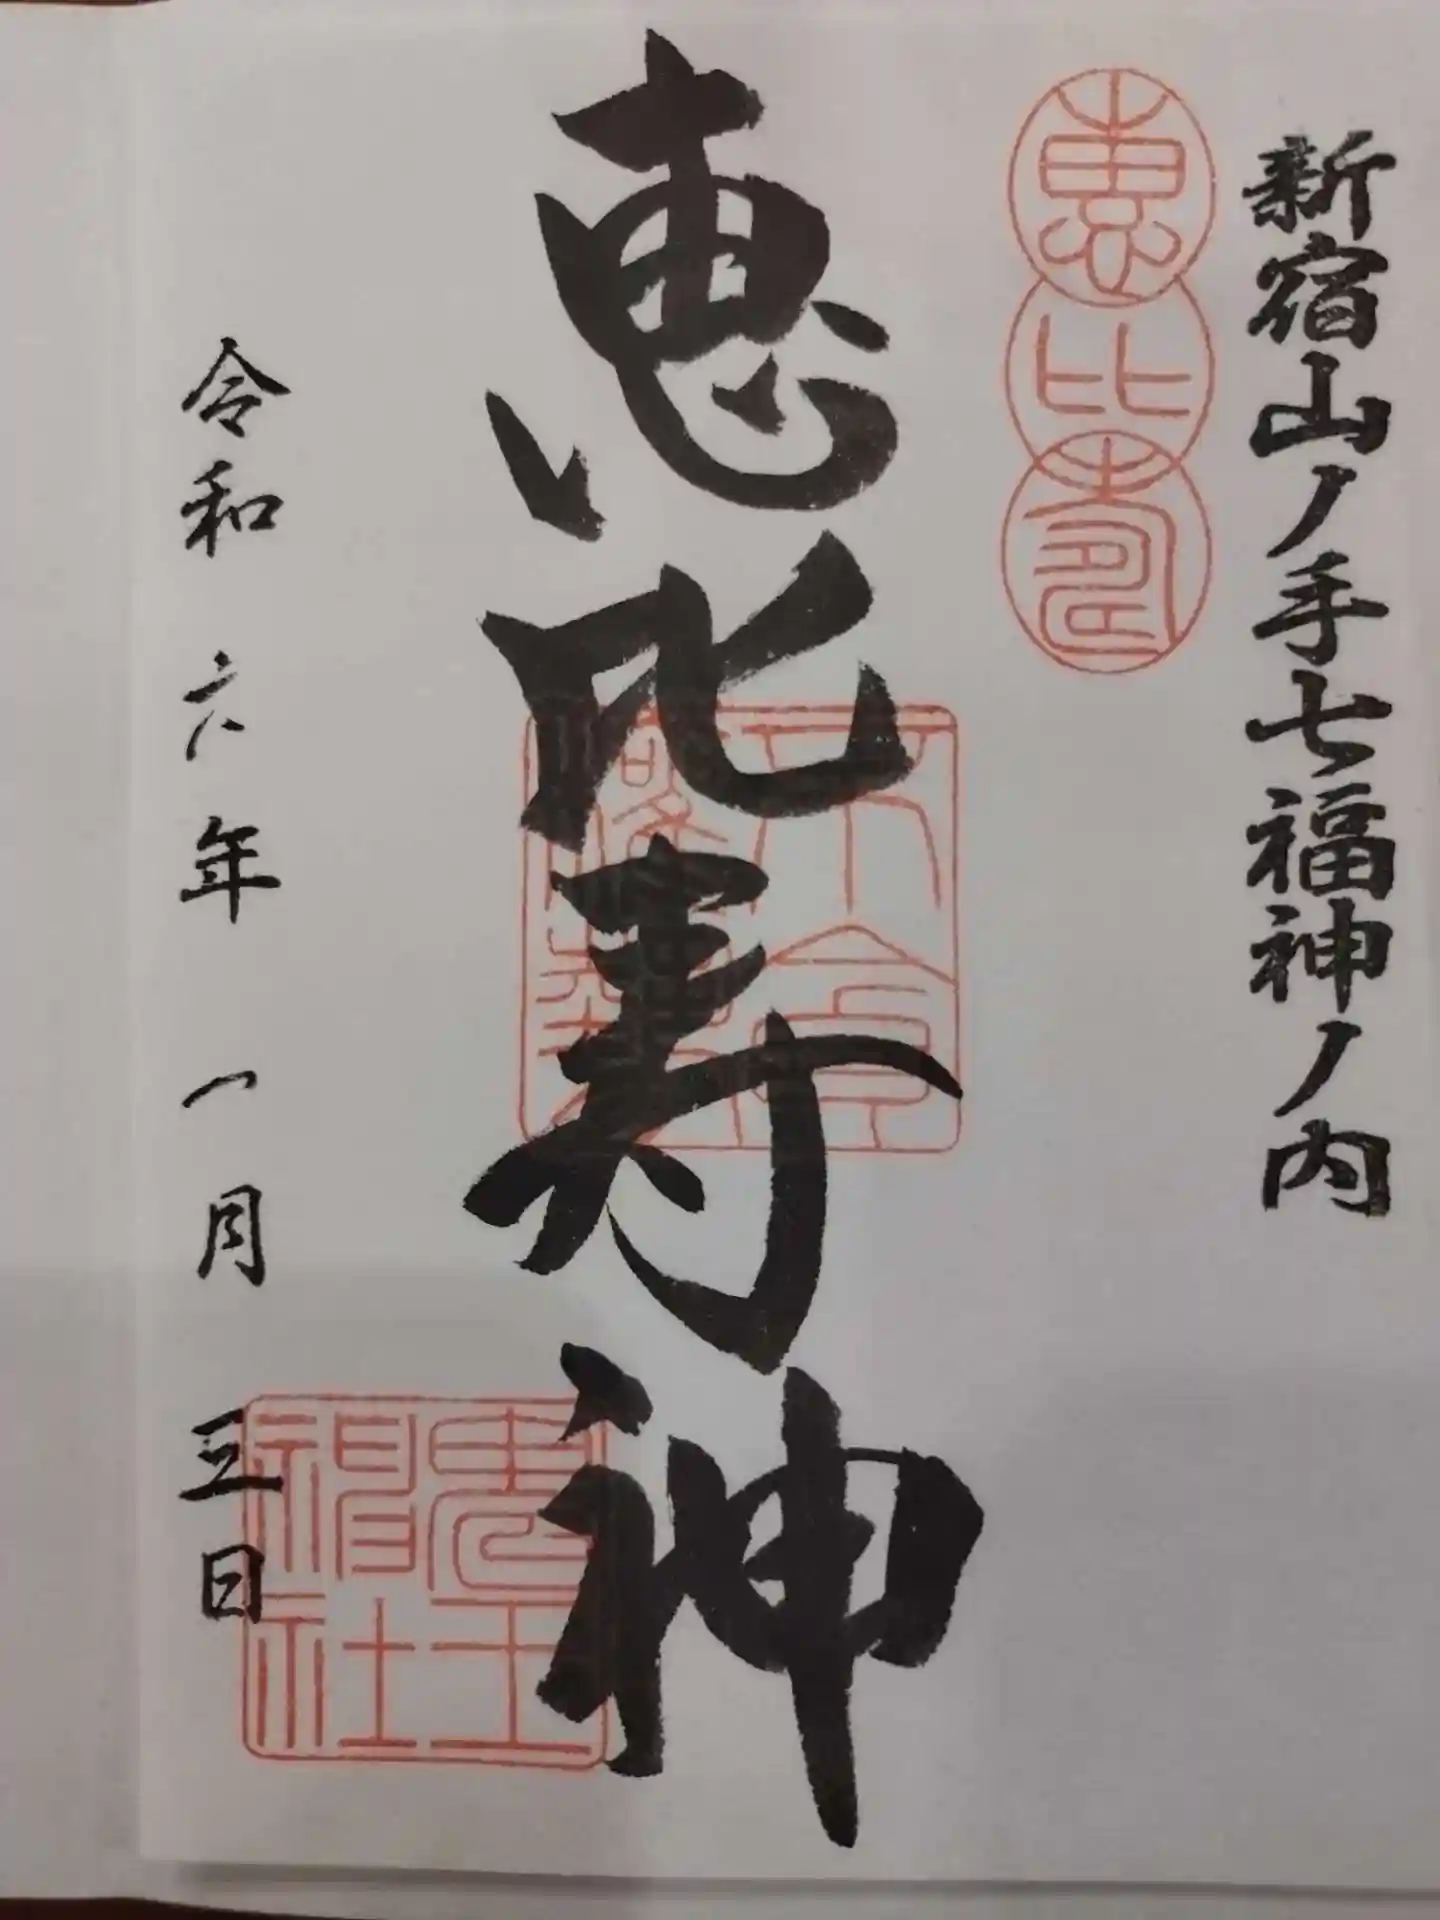 新宿山ノ手七福神ノ内
恵比寿
恵比寿神
令和六年一月三日
鬼王
稲社